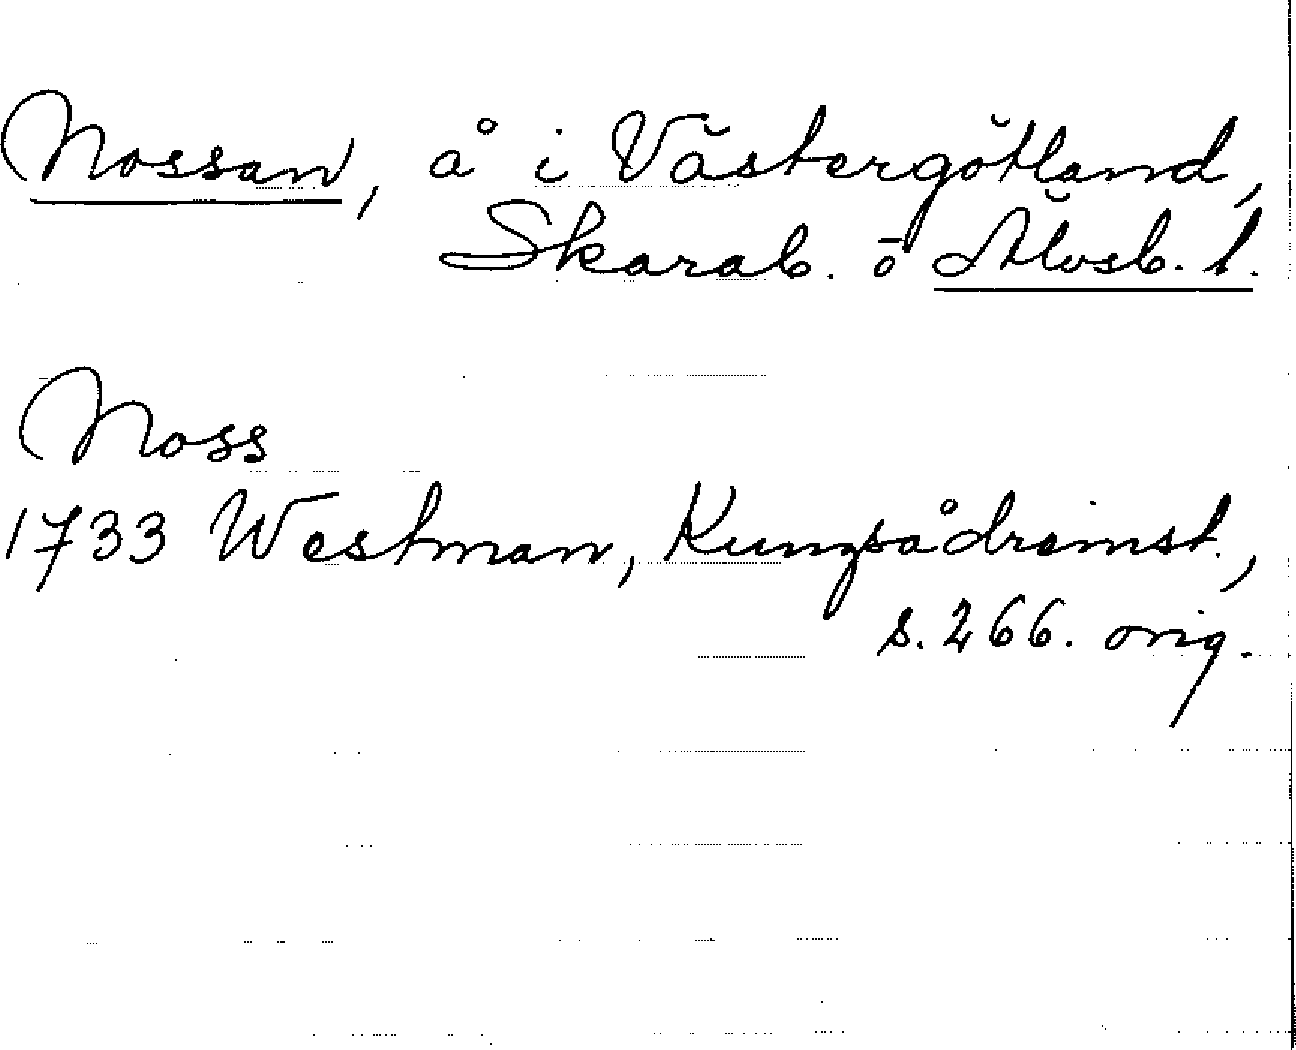 Nossan, å i Västergötland,
Skarab. o Älvsb. l.
Noss
1733 Westman, Kungsådreinst.,
s. 266. orig.